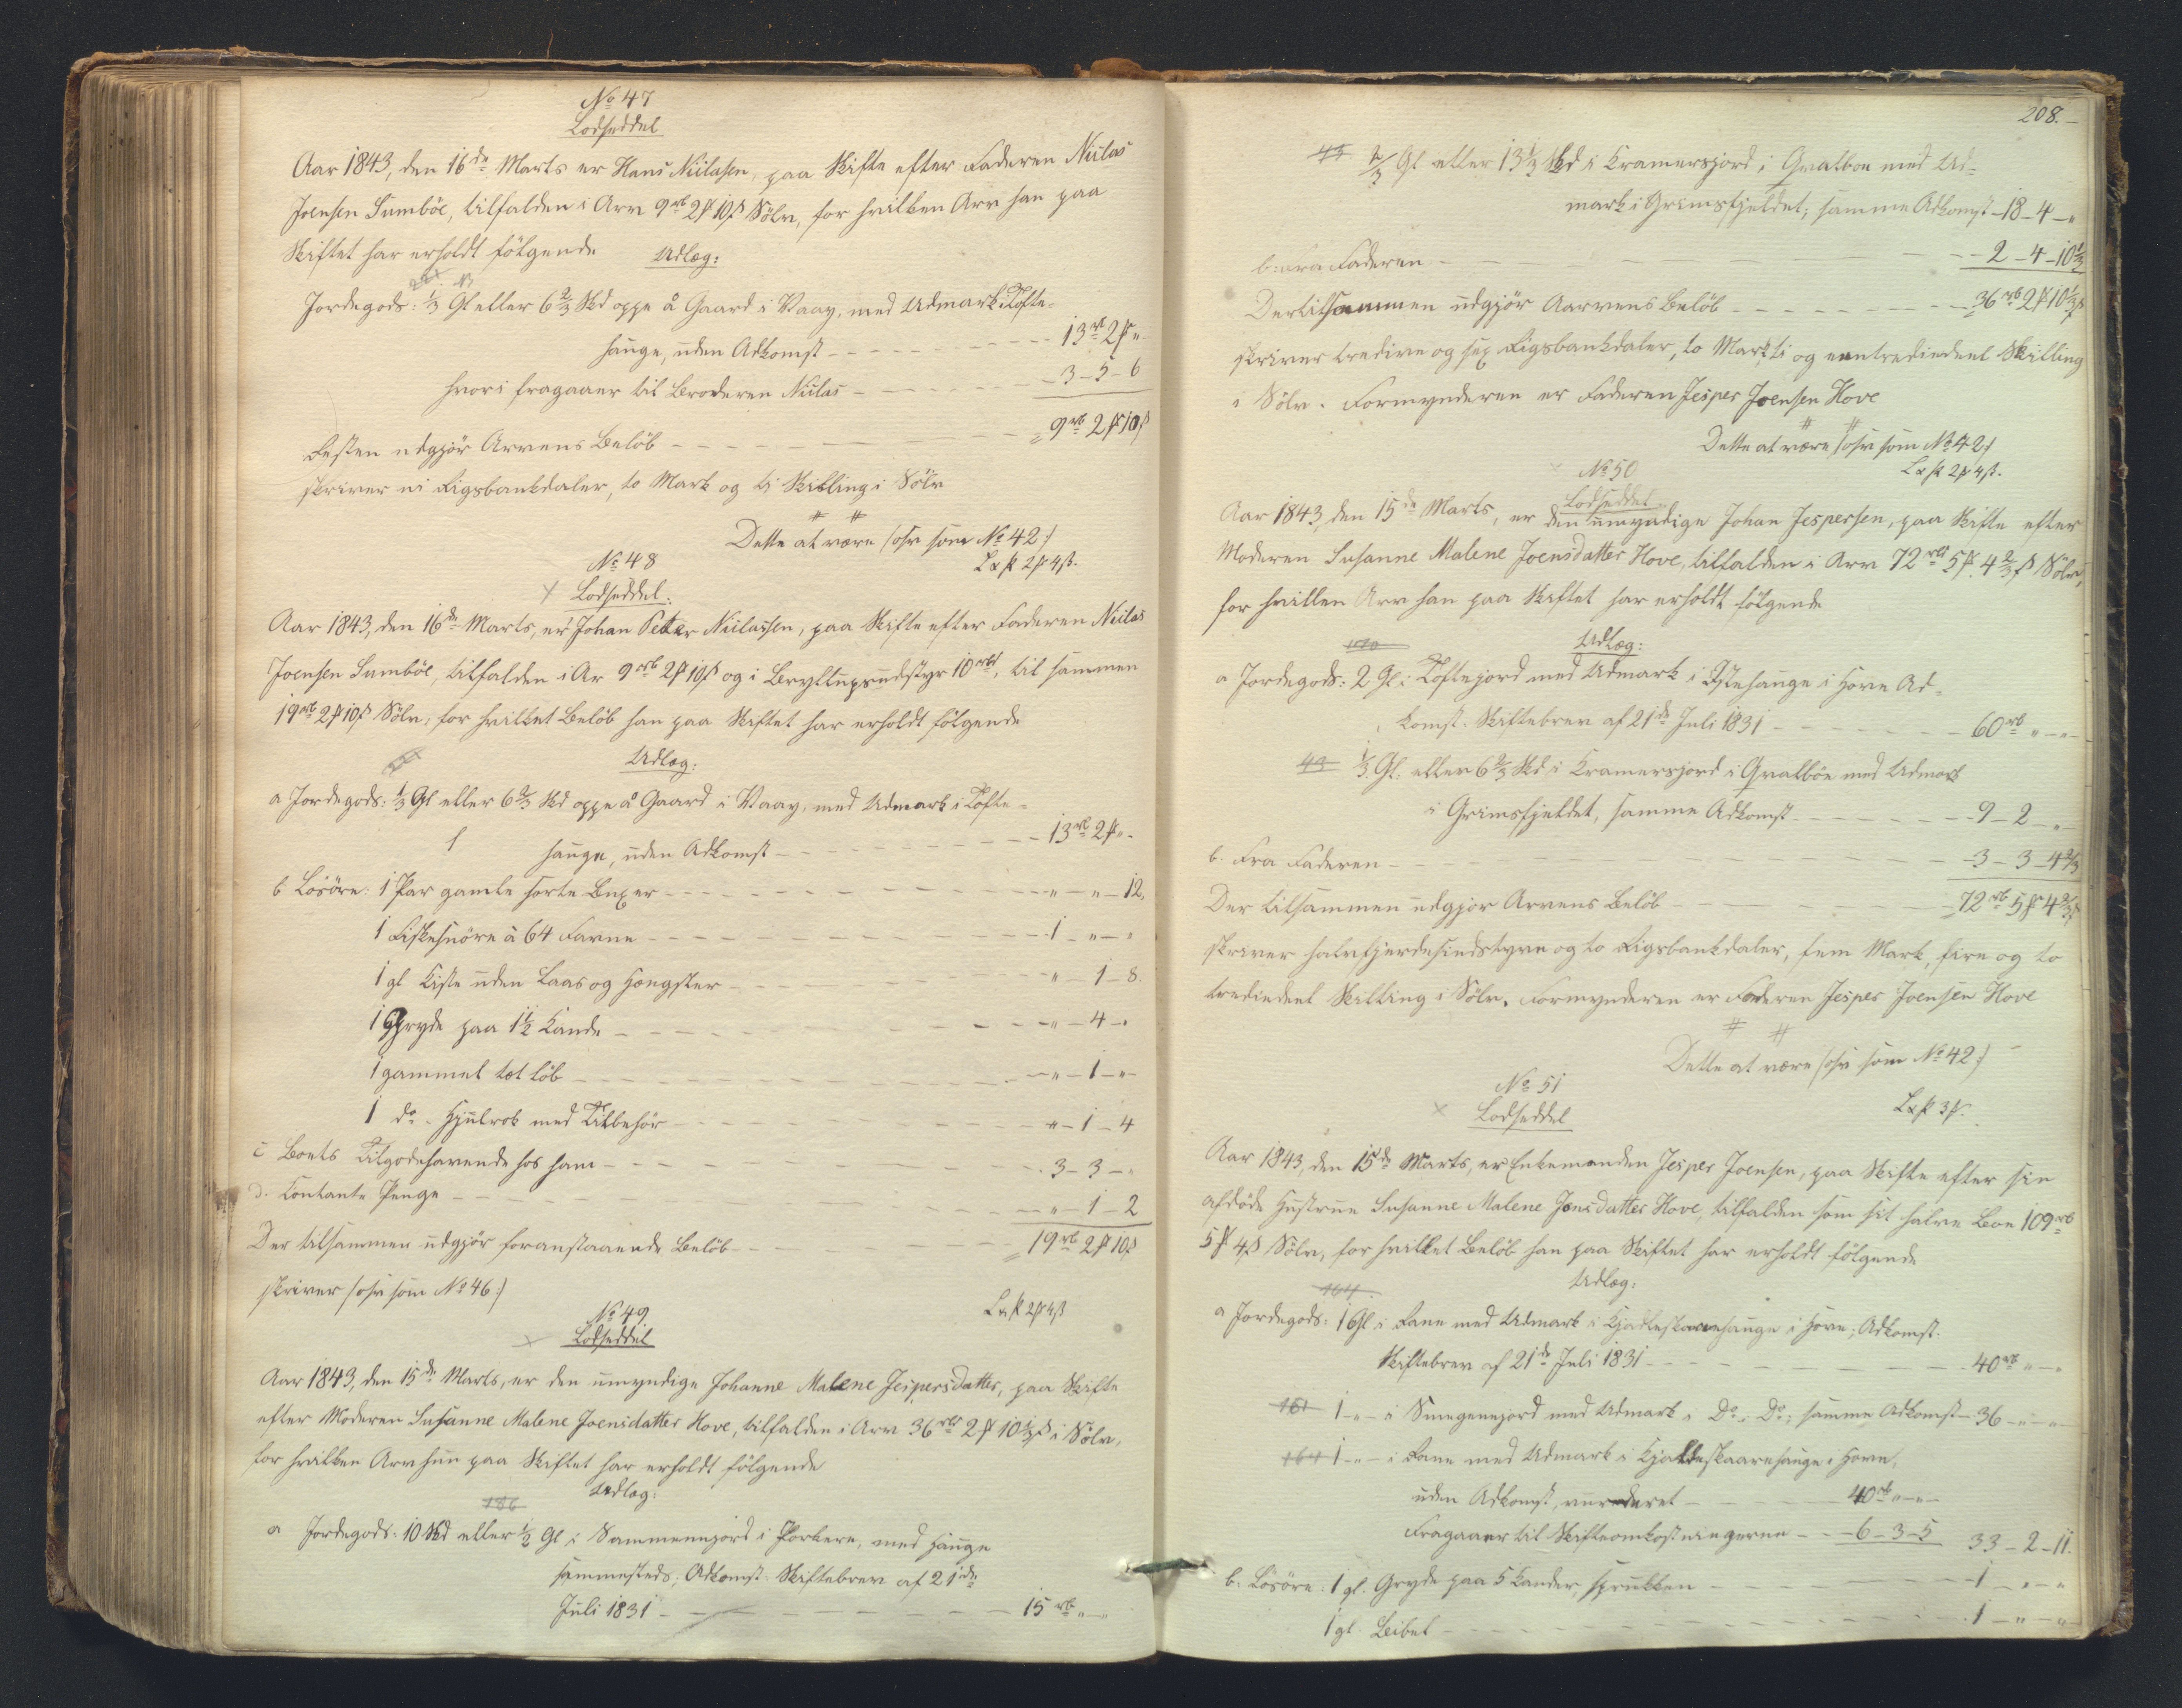 No 47
Lodseddel
Aar 1843, den 16de Marts er Hans Niilasen, paa Skifte efter Faderen Niilas
Joensen Sumböe, tilfalden i Arv 9rb 2# 10ß Sölv, for hvilken Arv han paa
Skiftet har erholdt fölgende
Udlæg:
Jordegods: 1/3 Gl eller 6 2/3 Skd oppe á Gaard i Vaag, med Udmark i Tofte-
hauge, uden Adkomst - - - 13rb 2# "
hvori fragaaer til Broderen Niilas - - - 3 - 5 - 6
Resten udgjör Arvens Belöb - - - 9rb 2# 10ß
skriver ni Rigsbankdaler, to Mark og ti Skilling i Sölv
Dette at være (osv som No 42:)
No 48
L x k 2# 4ß.
Lodseddel.
Aar 1843, den 16de Marts, er Johan Peter Niilassen, paa Skifte efter Faderen Niilas
Joensen Sumböe, tilfalden i Ar 9rb 2# 10ß og i Bryllupsudstyr 10rbd, til sammen
19rb 2# 10ß Sölv, for hvilket Belöb han paa Skiftet har erholdt fölgende
Udlæg:
a Jordegods: 1/3 Gl eller 6 2/3 Skd oppe á Gaard i Vaag, med Udmark i Tofte-
hauge, uden Adkomst - - - 13rb 2# "-
b Lösöre: 1 Par gamle sorte Buxer - - - " - " - 12.
1 Fiskesnöre á 64 Favne - - - 1 - " - "
1 gl Kiste uden Laas og Hængsler - - - " - 1 - 8.
1 Gryde paa 1 1/2 Kande - - - " - 4 - "
1 gammel tot löb - - - " - 1 - "
1 do - Hjulrok med Tilbehör - - - " - 1 - 4
c Boets Tilgodehavende hos ham - - - 3 - 3 - "
d. Contante Penge - - - " - 1 - 2
Der tilsammen udgjör foranstaaende Belöb - - - 19rb 2# 10ß
skriver (osv som No 46:)
No 49
L x k 2# 4ß
Lodseddel
Aar 1843, den 15de Marts, er den umyndige Johanne Malene Jespersdatter, paa Skifte
efter Moderen Susanne Malene Joensdatter Hove, tilfalden i Arv 36rbd 2# 10 1/3ß i Sölv,
for hvilken Arv hun paa Skiftet har erholdt fölgende
Udlæg:
186
a Jordegods: 10 Skd eller 1/2 Gl i Sammenejord i Porkere, med Hauge
sammesteds; Adkomst: Skiftebrev af 21de
Juli 1831 - - - 15 rb " - "
208.-
43 2/3 Gl eller 13 1/3 Skd i Kramersjord i Qvalböe med Ud-
mark i Grimsfjeldet; samme Adkomst - 18 - 4 - "
b: Fra Faderen - - - 2 - 4 - 10 1/3
Der tilsammen udgjör Aarvens Belöb - - - 36rb 2# 10 1/3ß
skriver tredive og sex Rigsbankdaler, to Mark, ti og een trediedeel Skilling
i Sölv. Formynderen er Faderen Jesper Joensen Hove
Dette at være (osv som No 42:)
No 50
L x k 2# 4ß.
Lodseddel
Aar 1843, den 15de Marts, er den umyndige Johan Jespersen, paa Skifte efter
Moderen Susanne Malene Joensdatter Hove, tilfalden i Arv 72rbd 5# 4 2/3ß Sölv,
for hvilken Arv han paa Skiftet har erholdt fölgende
Udlæg:
a Jordegods: 2 Gl i Toftejord med Udmark i Ystehauge i Hove Ad-
komst: Skiftebrev af 21de Juli 1831 - - - 60rb " - "
43 1/3 Gl. eller 6 2/3 Skd i Kramersjord i Qvalböe med Udmark
i Grimsfjeldet, samme Adkomst - - - 9 - 2 - "
b. Fra Faderen - - - 3 - 3 - 4 2/3
Der tilsammen udgjör Arvens Belöb - - - 72rb 5# 4 2/3ß
skriver halvfjerdesindstyve og to Rigsbankdaler, fem Mark, fire og to
trediedeel Skilling i Sölv. Formynderen er Faderen Jesper Joensen Hove
Dette at være (osv som No 42:)
No 51
L x k 3#.
Lodseddel
Aar 1843, den 15de Marts, er Enkemanden Jesper Joensen, paa Skifte efter sin
afdöde Hustrue Susanne Malene Jonsdatter Hove, tilfalden som sit halve Boe 109rb
5# 4ß Sölv, for hvilket Belöb han paa Skiftet har erholdt fölgende
Udlæg:
164
a Jordegods: 1 Gl i Fane med Udmark i Kjadleskaarehauge i Hove; Adkomst.
Skiftebrev af 21de Juli 1831 - - - 40rb " - "
161 1 - " - i Smegenejord med Udmark i Do i Do; samme Adkomst - 36 - " - "
164 1 - " - i Fane med Udmark i Kjadleskaarehauge i Hove,
uden Adkomst, vurderet - - - 40rb " - "
Fragaaer til Skifteomkostningerne - - 6 - 3 - 5 33 - 2 - 11.
b. Lösöre: 1 gl. Gryde paa 5 Kander, sprukken - - - 1 - " - "
1 gl. Leibel - - - 1 - " - "